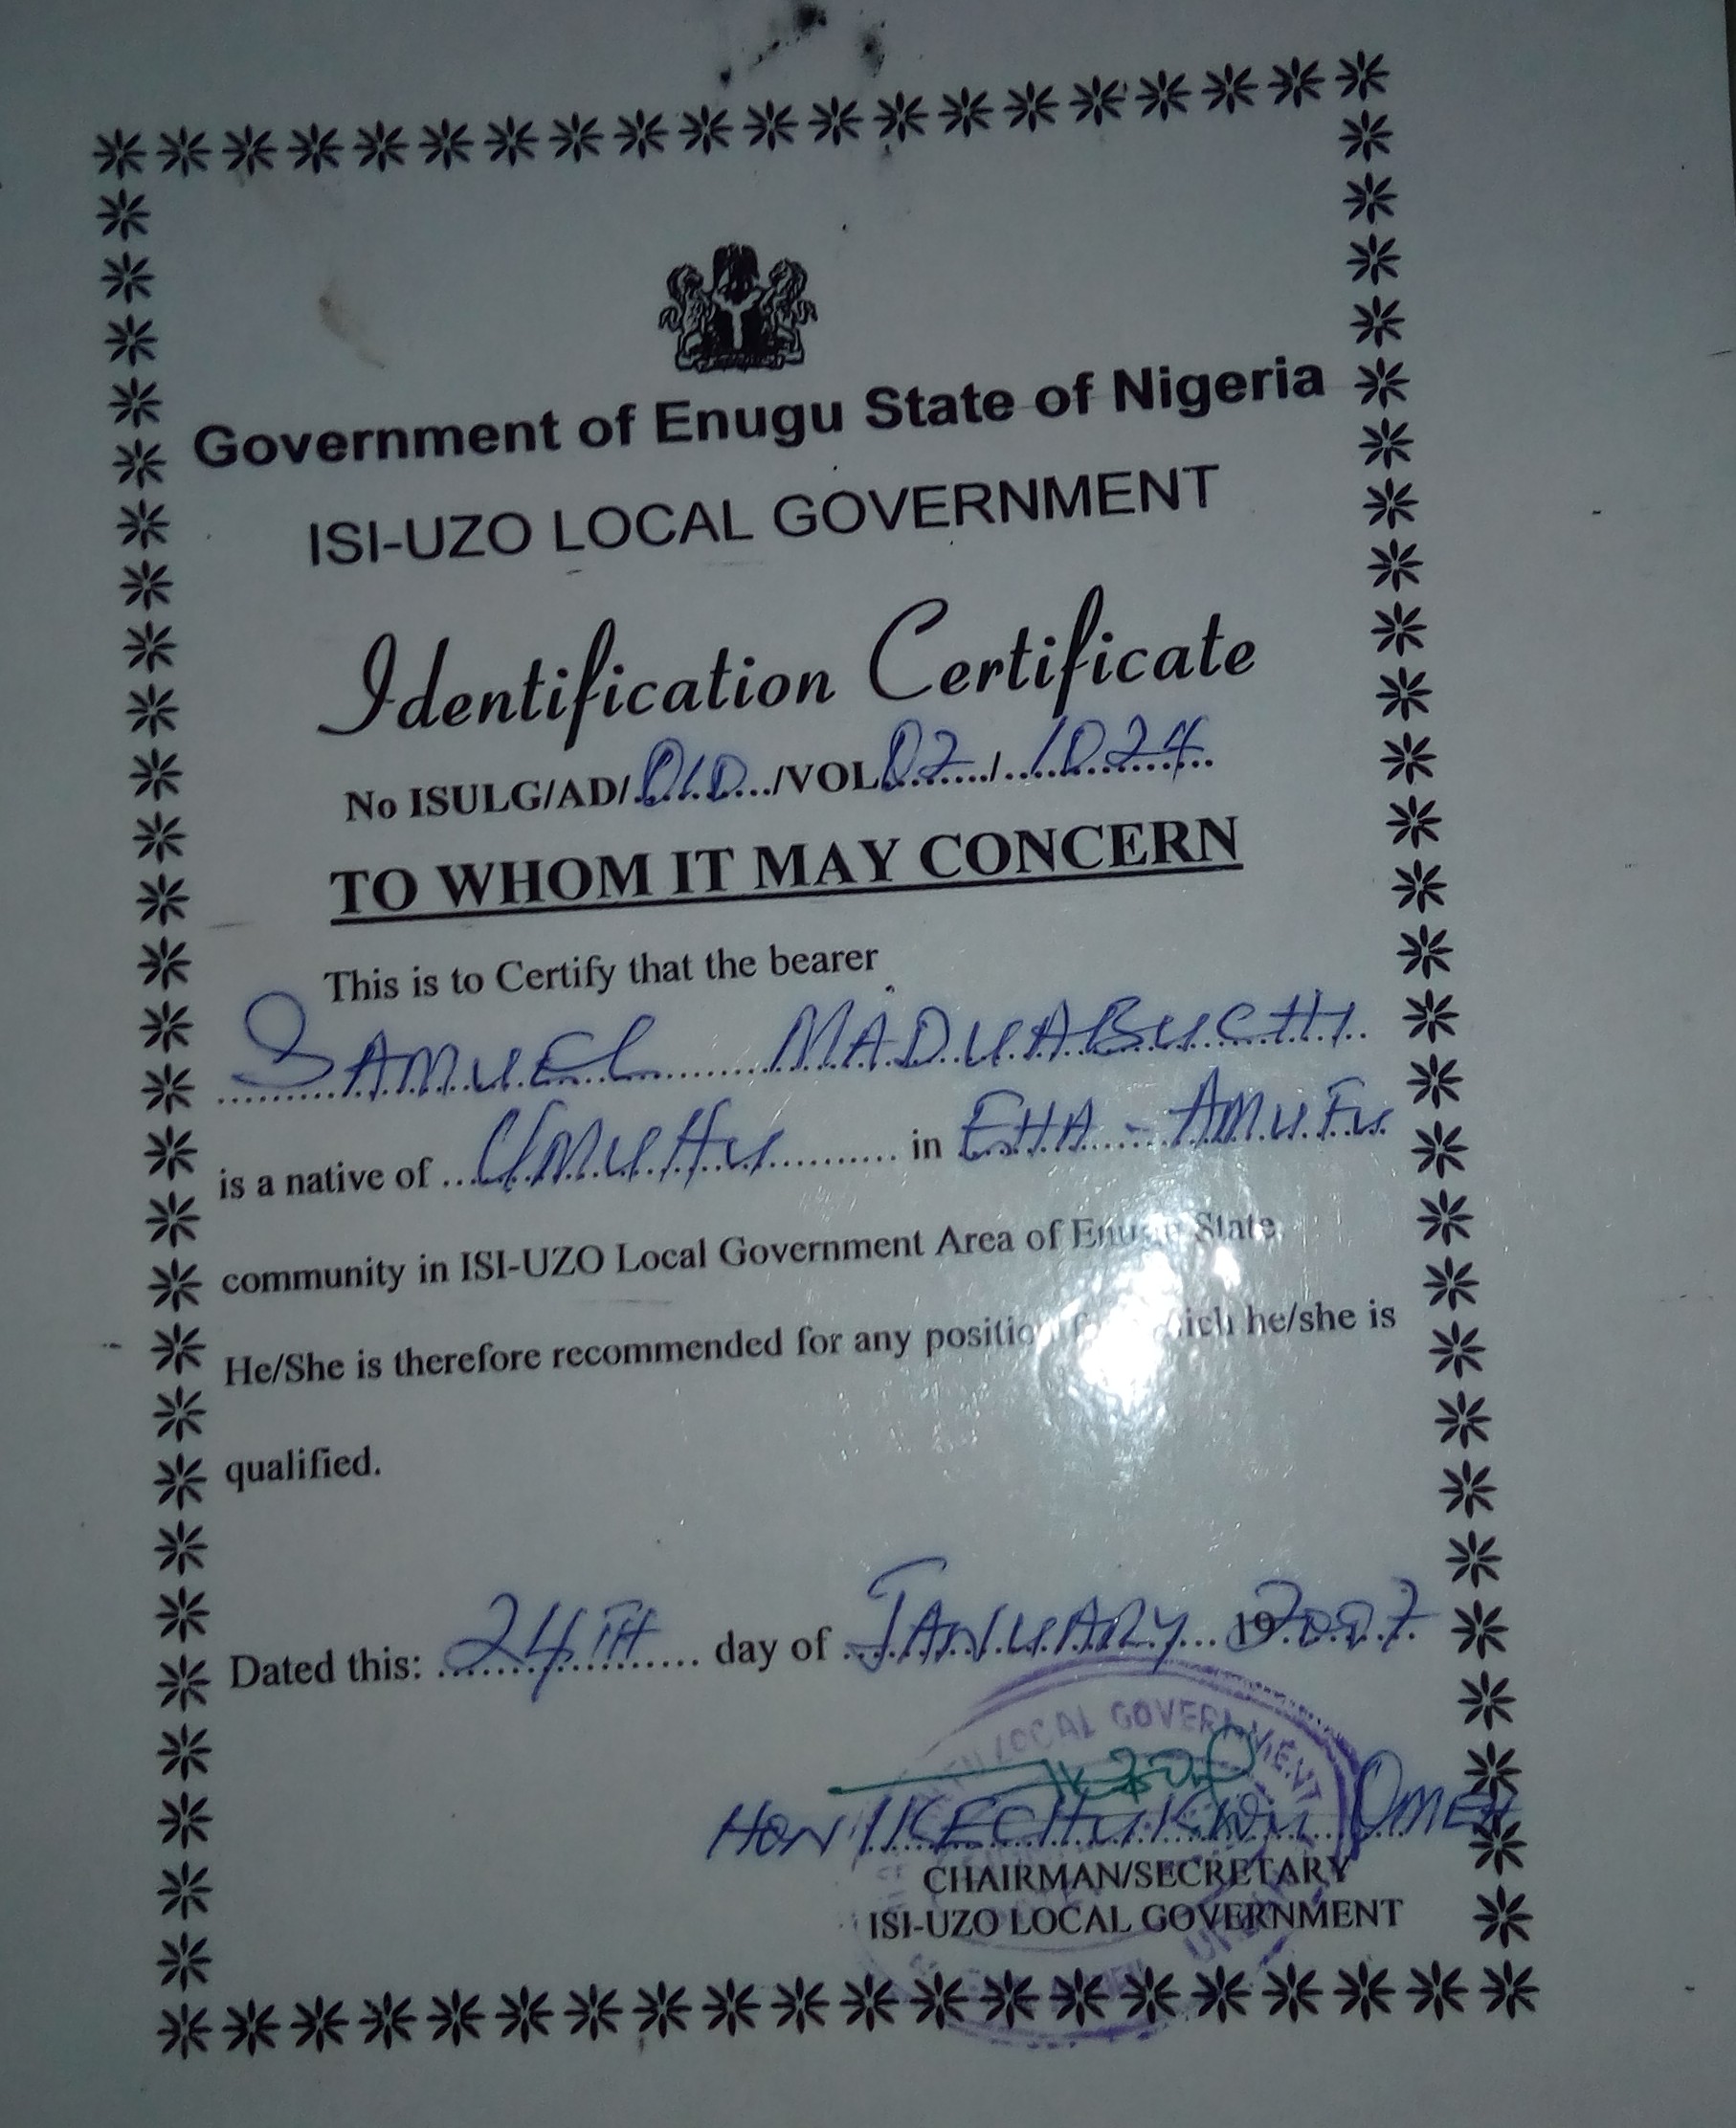 Government of Enugu State of Nigeria
ISI-UZO LOCAL GOVERNMENT
Identification Certificate
No ISULG/AD/.010.../VOL.02....../..1024..
TO WHOM IT MAY CONCERN
This is to Certify that the bearer
SAMUEL MADUABUCHI
is a native of ...UMUHU.......... in EHA - AMUFU
community in ISI-UZO Local Government Area of Enugu State.
He/She is therefore recommended for any position for which he/she is
qualified.
Dated this: 24TH day of JANUARY 19 2007
LOCAL GOVERNMENT
HON IKECHUKWU OMEH
CHAIRMAN/SECRETARY
ISI-UZO LOCAL GOVERNMENT